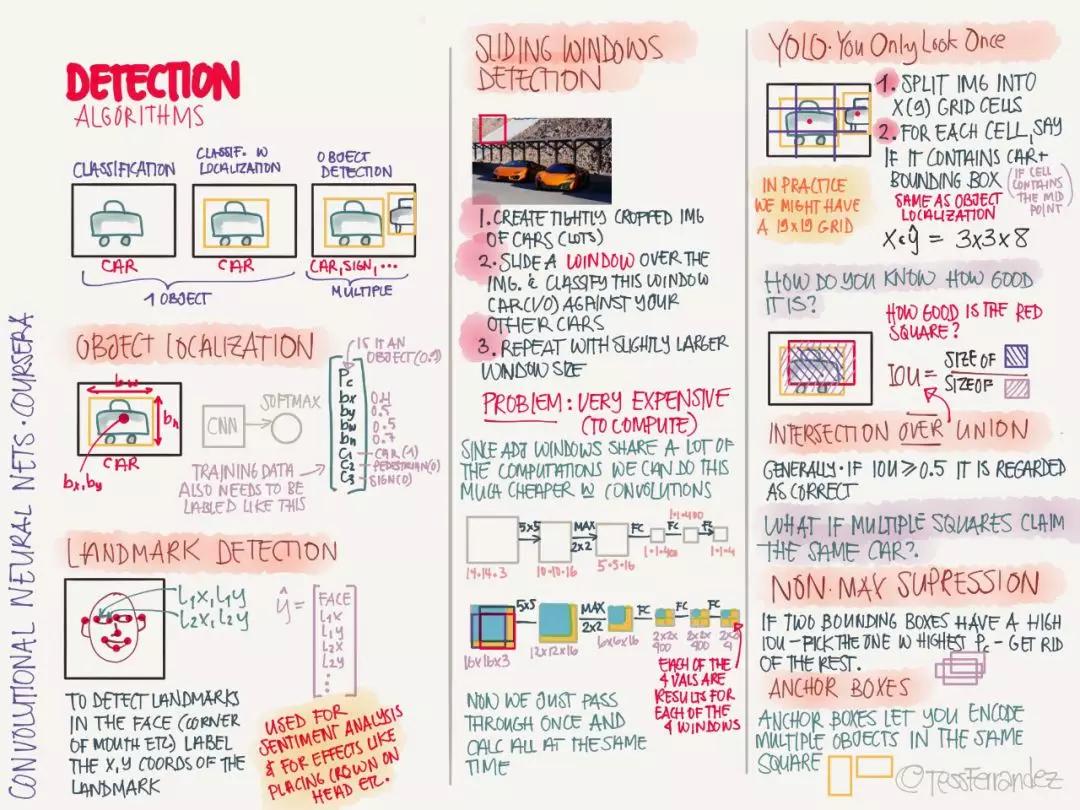 CONVOLUTIONAL NEURAL NETS · COURSERA
DETECTION
ALGORITHMS
CLASSIFICATION
CLASSIF. W
LOCALIZATION
OBJECT
DETECTION
CAR
CAR
CAR, SIGN, ...
1 OBJECT
MULTIPLE
OBJECT LOCALIZATION
bw
bh
CAR
bx, by
CNN
SOFTMAX
IS IT AN
OBJECT (0.1)
Pc
bx
by 0.5
bw 0.5
bh 0.7
C1 - CAR (1)
C2 - PEDESTRIAN (0)
C3 - SIGN (0)
TRAINING DATA
ALSO NEEDS TO BE
LABLED LIKE THIS
LANDMARK DETECTION
L1X, L1Y
L2X, L2Y
ŷ =
FACE
L1X
L1Y
L2X
L2Y
⋮
TO DETECT LANDMARKS
IN THE FACE (CORNER
OF MOUTH ETC) LABEL
THE X,Y COORDS OF THE
LANDMARK
USED FOR
SENTIMENT ANALYSIS
& FOR EFFECTS LIKE
PLACING CROWN ON
HEAD ETC.
SLIDING WINDOWS
DETECTION
1. CREATE TIGHTLY CROPPED IMG
OF CARS (LOTS)
2. SLIDE A WINDOW OVER THE
IMG. & CLASSIFY THIS WINDOW
CAR (1/0) AGAINST YOUR
OTHER CARS
3. REPEAT WITH SLIGHTLY LARGER
WINDOW SIZE
PROBLEM: VERY EXPENSIVE
(TO COMPUTE)
SINCE ADJ WINDOWS SHARE A LOT OF
THE COMPUTATIONS WE CAN DO THIS
MUCH CHEAPER W CONVOLUTIONS
5x5
MAX
2x2
FC
FC
FC
1·1·400
14·14·3
10·10·16
5·5·16
1·1·400
1·1·4
5x5
MAX
2x2
FC
FC
FC
16x16x3
12x12x16
6x6x16
2x2x
400
2x2x
400
4
EACH OF THE
4 VALS ARE
RESULTS FOR
EACH OF THE
4 WINDOWS
NOW WE JUST PASS
THROUGH ONCE AND
CALC ALL AT THE SAME
TIME
YOLO · You Only Look Once
1. SPLIT IMG INTO
X (9) GRID CELLS
2. FOR EACH CELL, SAY
IF IT CONTAINS CAR +
BOUNDING BOX
(IF CELL
CONTAINS
THE MID
POINT)
SAME AS OBJECT
LOCALIZATION
IN PRACTICE
WE MIGHT HAVE
A 19x19 GRID
ŷ = 3x3x8
HOW DO YOU KNOW HOW GOOD
IT IS?
HOW GOOD IS THE RED
SQUARE?
IOU =
SIZE OF
SIZE OF
INTERSECTION OVER UNION
GENERALLY · IF IOU ≥ 0.5 IT IS REGARDED
AS CORRECT
WHAT IF MULTIPLE SQUARES CLAIM
THE SAME CAR?
NON · MAX SUPRESSION
IF TWO BOUNDING BOXES HAVE A HIGH
IOU - PICK THE ONE W HIGHEST Pc - GET RID
OF THE REST.
ANCHOR BOXES
ANCHOR BOXES LET YOU ENCODE
MULTIPLE OBJECTS IN THE SAME
SQUARE
@TessFerrandez